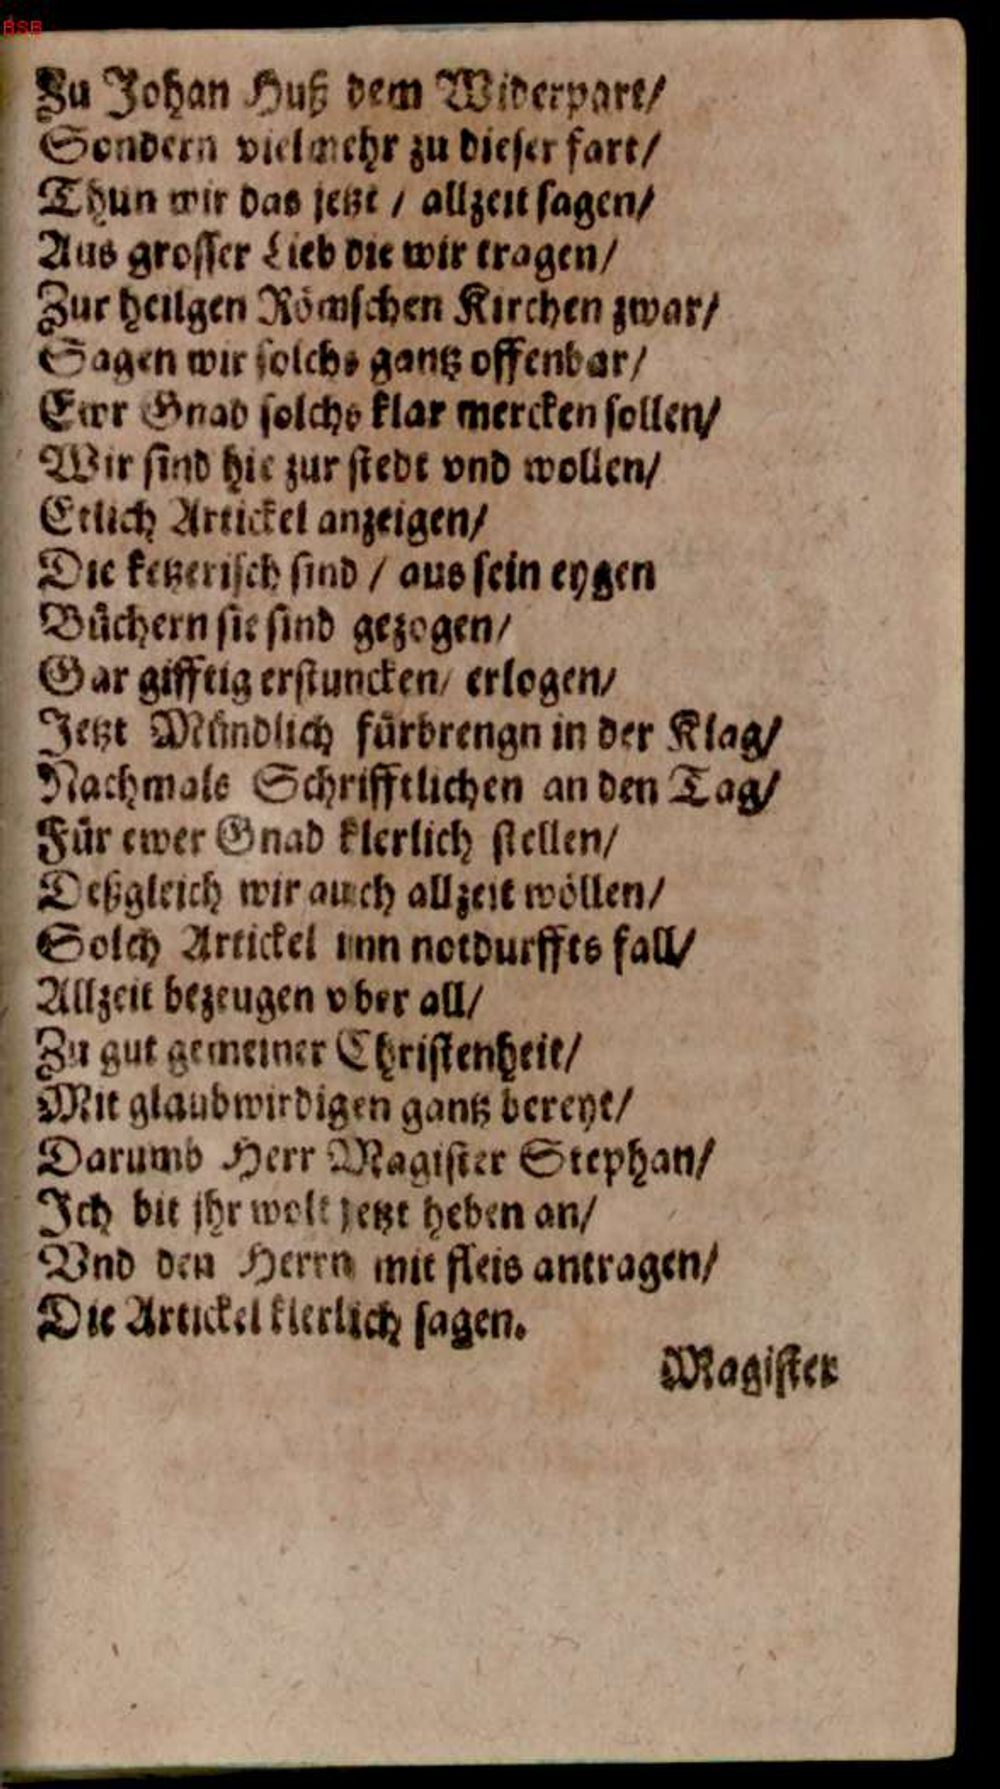 BSB
Zu Johan Huß dem Widerpart/
Sondern vielmehr zu dieser fart/
Thun wir das jetzt / allzeit sagen/
Aus grosser Lieb die wir tragen/
Zur heilgen Römschen Kirchen zwar/
Sagen wir solchs gantz offenbar/
Ewr Gnad solchs klar mercken sollen/
Wir sind hie zur stedt vnd wollen/
Etlich Artickel anzeigen/
Die ketzerisch sind / aus sein eygen
Büchern sie sind gezogen/
Gar gifftig erstuncken/ erlogen/
Jetzt Mündlich fürbrengn in der Klag/
Nachmals Schrifftlichen an den Tag/
Für ewer Gnad klerlich stellen/
Deßgleich wir auch allzeit wöllen/
Solch Artickel inn notdurffts fall/
Allzeit bezeugen vber all/
Zu gut gemeiner Christenheit/
Mit glaubwirdigen gantz bereyt/
Darumb Herr Magister Stephan/
Ich bit jhr wolt jetzt heben an/
Vnd den Herrn mit fleis antragen/
Die Artickel klerlich sagen.
Magister